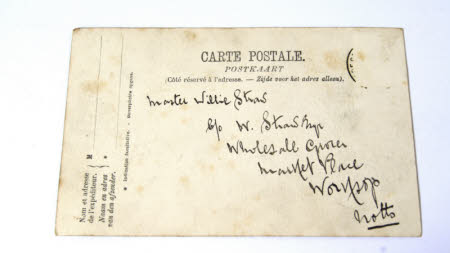 CARTE POSTALE.
POSTKAART
(Côté réservé à l'adresse. — Zijde voor het adres alleen).
Master Willie Straw
c/o W. Straw Esqr
Wholesale Grocer
Market Place
Worksop
Notts
Nom et adresse
de l'expéditeur.
Naam en adres
van den afzender.
M